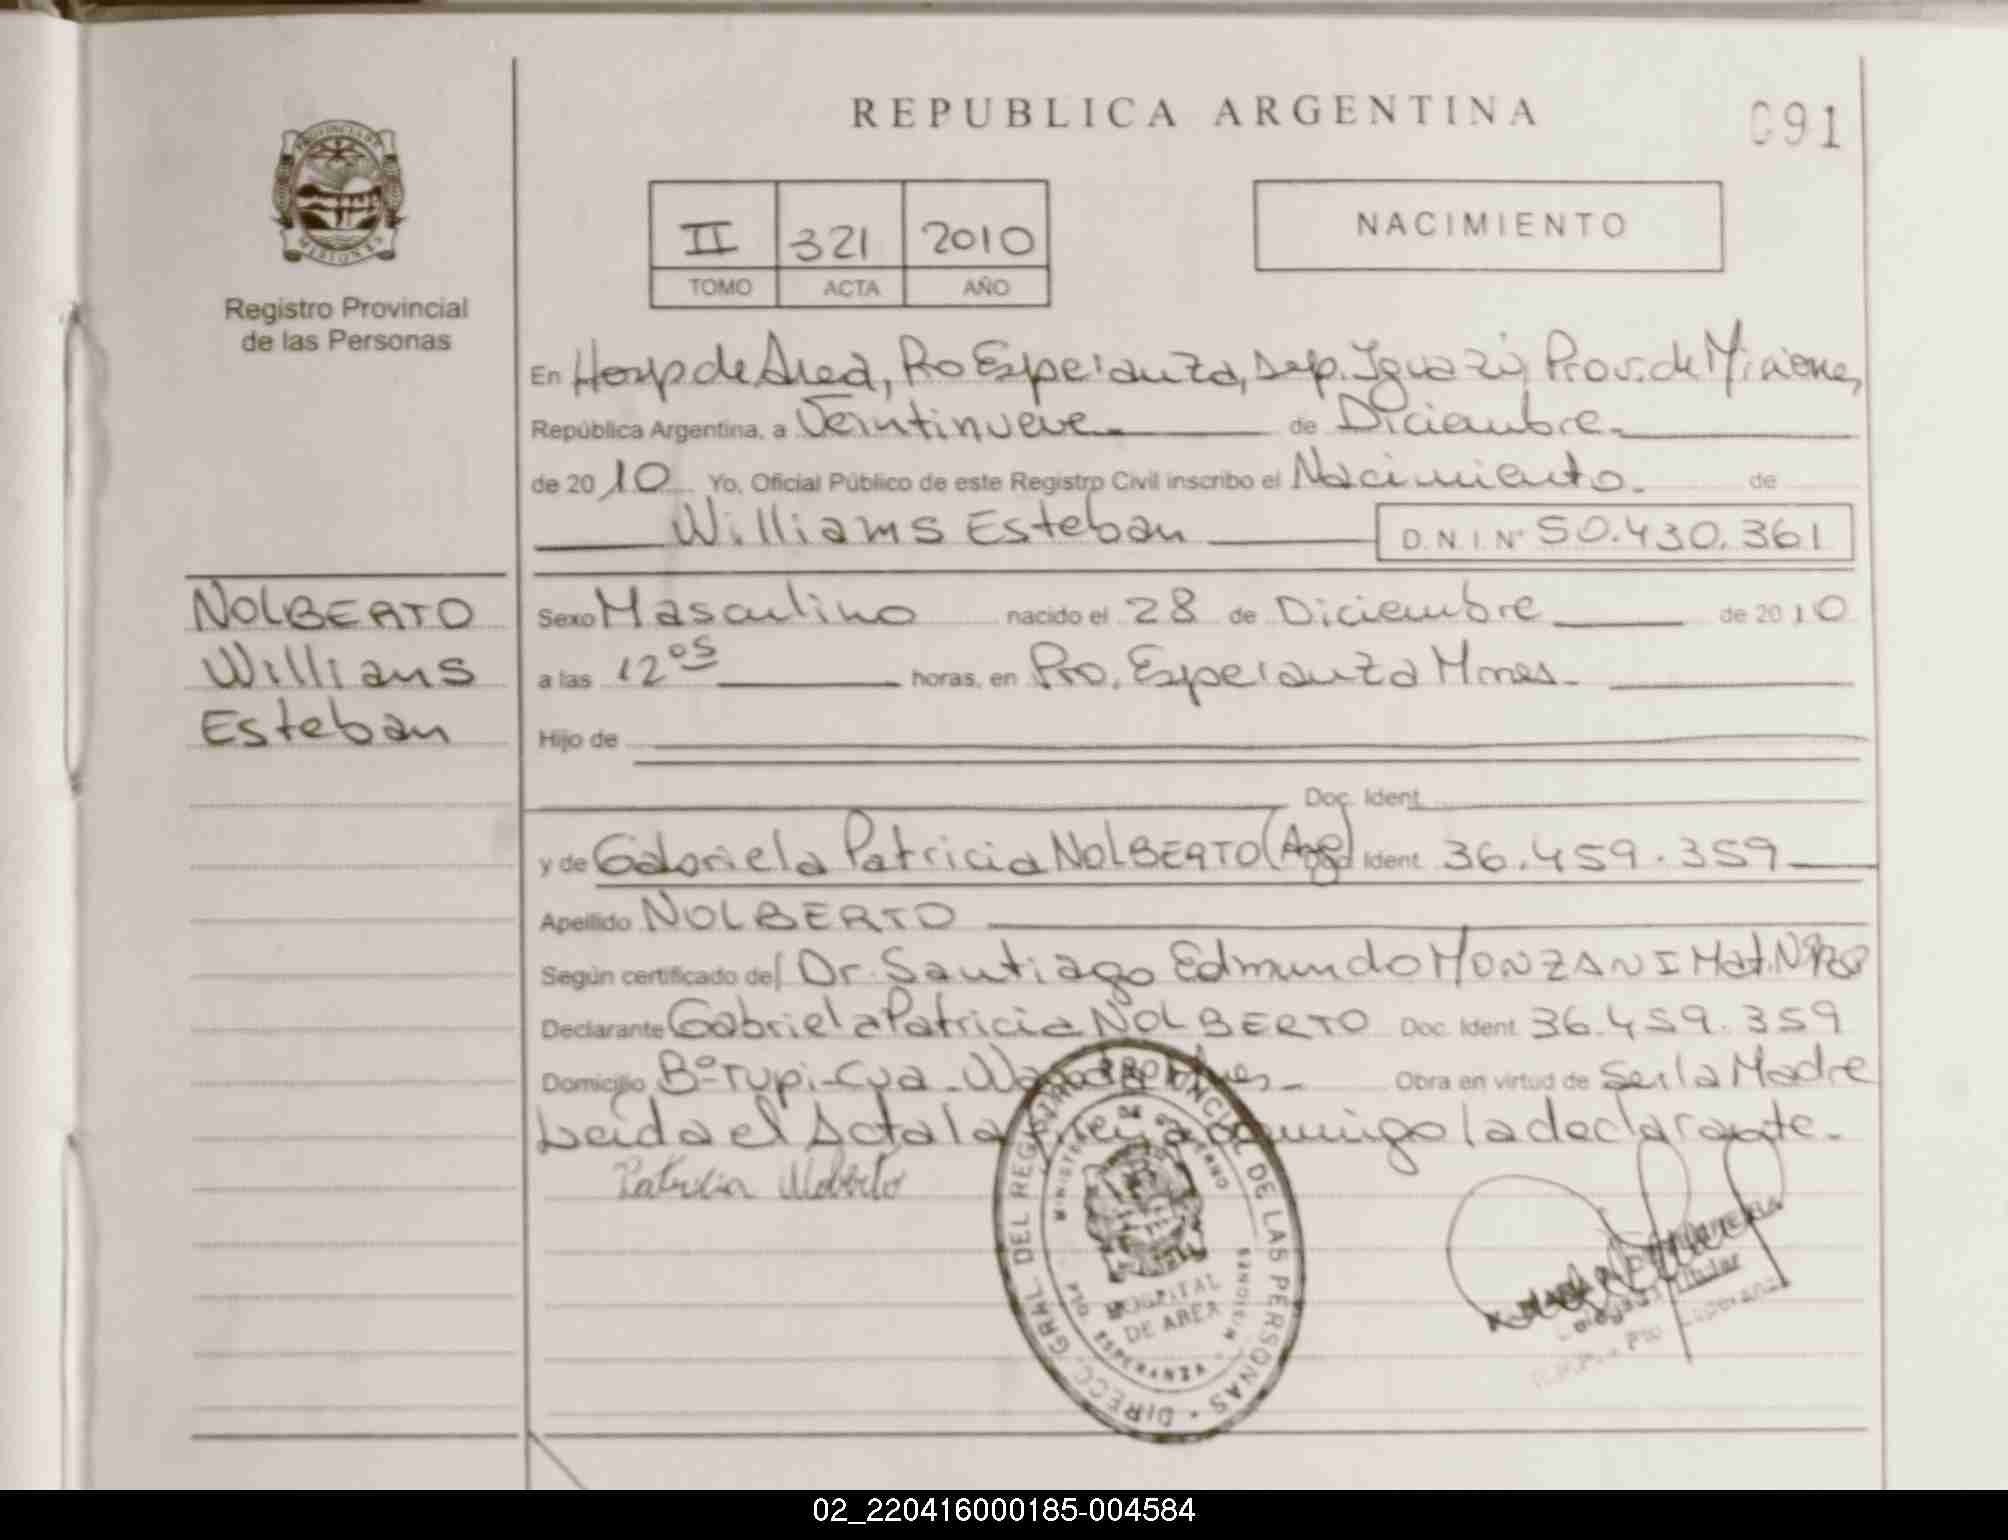 REPUBLICA ARGENTINA
091
PROVINCIA DE
MISIONES
Registro Provincial
de las Personas
II 321 2010
TOMO ACTA AÑO
NACIMIENTO
En Hosp de Area, Pto Esperanza, Dep. Iguazú, Prov. de Misiones,
República Argentina, a Veintinueve de Diciembre
de 2010 Yo, Oficial Público de este Registro Civil inscribo el Nacimiento de
Williams Esteban D.N.I. Nº 50.430.361
NOLBERTO
Williams
Esteban
Sexo Masculino nacido el 28 de Diciembre de 2010
a las 12 05 horas, en Pto. Esperanza Mnes.
Hijo de
Doc. Ident.
y de Gabriela Patricia NOLBERTO (Arg) Ident. 36.459.359
Apellido NOLBERTO
Según certificado del Dr. Santiago Edmundo MONZANI Mat. Nº
Declarante Gabriela Patricia NOLBERTO Doc. Ident. 36.459.359
Domicilio Bº Tupi-Cua - Obra en virtud de Ser la Madre
Leida el Acta la conmigo la declarante.
Patricia Nolberto
DIRECC. GRAL. DEL REGISTRO PROVINCIAL DE LAS PERSONAS
MINISTERIO DE GOBIERNO
HOSPITAL
DE AREA
ESPERANZA - MISIONES
Titular
Pto Esperanza
02_220416000185-004584